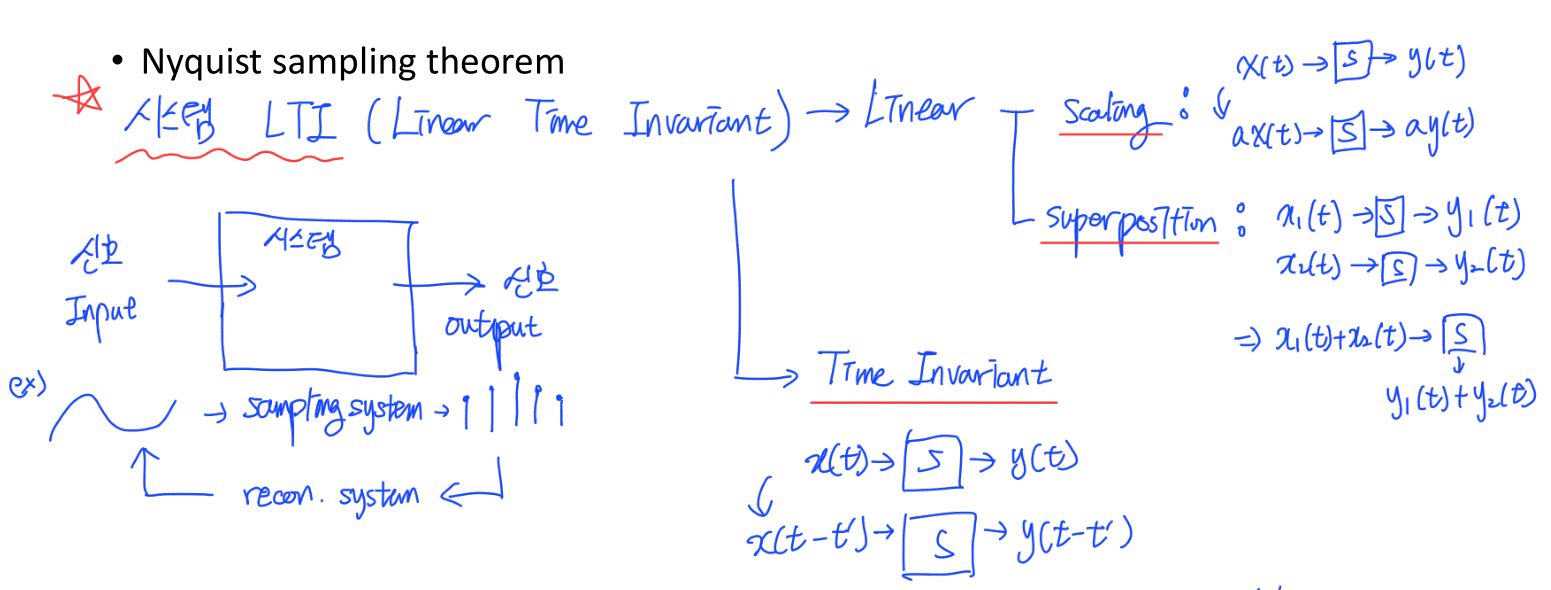 • Nyquist sampling theorem
☆ 시스템 LTI (Linear Time Invariant) → Linear
Scaling : x(t) → S → y(t)
ax(t) → S → ay(t)
superposition : x₁(t) → S → y₁(t)
x₂(t) → S → y₂(t)
⇒ x₁(t)+x₂(t) → S
↓
y₁(t)+y₂(t)
신호
Input
→ 시스템 →
신호
output
ex) → sampling system →
recon. system ←
Time Invariant
x(t) → S → y(t)
x(t-t') → S → y(t-t')